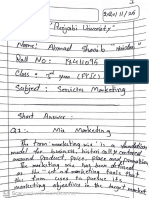 2020/11/26
"Punjabi University"
Name: Ahmad Shoaib
Roll No: 19411096
Class: 2nd year (
Subject: Services Marketing
Short Answer:
Q1:- Mix Marketing
The term marketing mix is a foundation
model for business, historically centered
around product, price, place and promotion
The marketing mix has been defined
as the "set of marketing tools that
the firm uses to pursue its
marketing objective in the target market